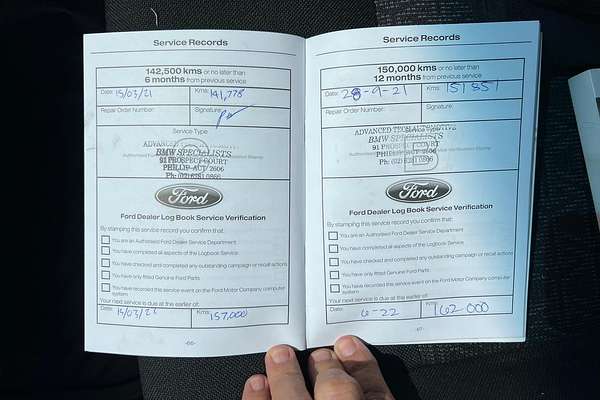 Service Records
142,500 kms or no later than
6 months from previous service
Date: 15/03/21 Kms: 141,778
Repair Order Number: Signature:
Service Type
ADVANCED
BMW SPECIALISTS
91 PROSPECT COURT
PHILLIP ACT 2606
Ph: (02) 6281 0866
Ford
Ford Dealer Log Book Service Verification
By stamping this service record you confirm that:
You are an Authorised Ford Dealer Service Department
You have completed all aspects of the Logbook Service
You have checked and completed any outstanding campaign or recall actions
You have only fitted Genuine Ford Parts
You have recorded this service event on the Ford Motor Company computer
system
Your next service is due at the earlier of:
Date: Kms: 157,000
-66-
Service Records
150,000 kms or no later than
12 months from previous service
Date: 28-9-21 Kms: 151 851
Repair Order Number: Signature:
Service Type
ADVANCED TECH AUTOMOTIVE
BMW SPECIALISTS
91 PROSPECT COURT
PHILLIP ACT 2606
Ph: (02) 6281 0866
Ford
Ford Dealer Log Book Service Verification
By stamping this service record you confirm that:
You are an Authorised Ford Dealer Service Department
You have completed all aspects of the Logbook Service
You have checked and completed any outstanding campaign or recall actions
You have only fitted Genuine Ford Parts
You have recorded this service event on the Ford Motor Company computer
system
Your next service is due at the earlier of:
Date: 6-22 Kms: 162 000
-67-